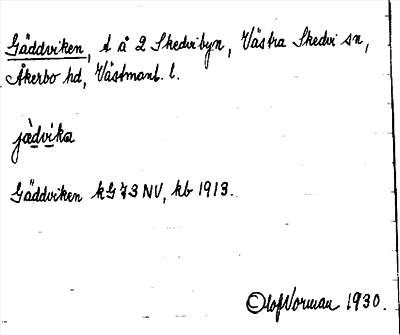 Gäddviken, t å 2 Skedvibyn, Västra Skedvi sn,
Åkerbo hd, Västmanl. l.
jædvika
Gäddviken kG 73 NV, kb 1913.
Olof Norman 1930.